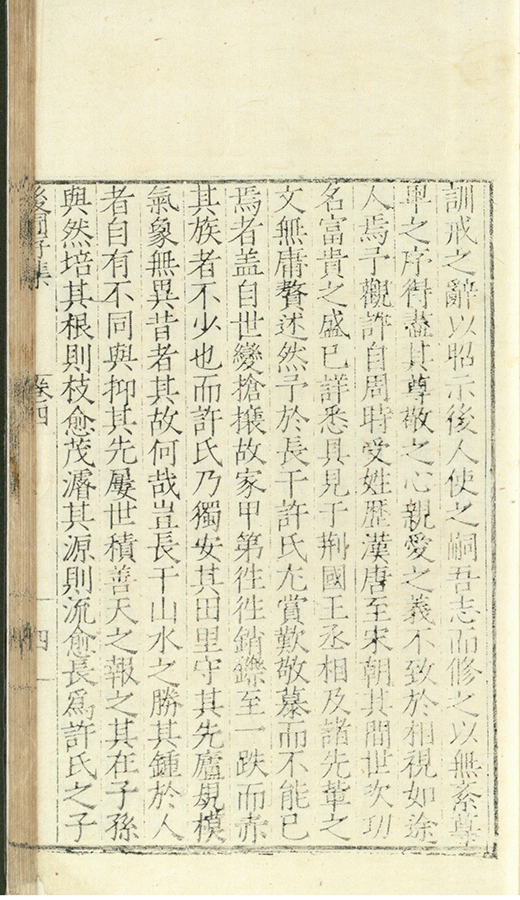 訓戒之辭以昭示後人使之嗣吾志而修之以無紊尊
卑之序得盡其尊敬之心親愛之義不致於相視如途
人焉予觀許自周時受姓歷漢唐至宋朝其間世次功
名富貴之盛已詳悉具見于荆國王丞相及諸先輩之
文無庸贅述然予於長干許氏尤賞歎敬慕而不能已
焉者盖自世變搶攘故家甲第徃徃銷鑠至一跌而赤
其族者不少也而許氏乃獨安其田里守其先廬規模
氣象無異昔者其故何哉豈長干山水之勝其鍾於人
者自有不同與抑其先屢世積善天之報之其在子孫
與然培其根則枝愈茂濬其源則流愈長爲許氏之子
後圃存集 卷四 四